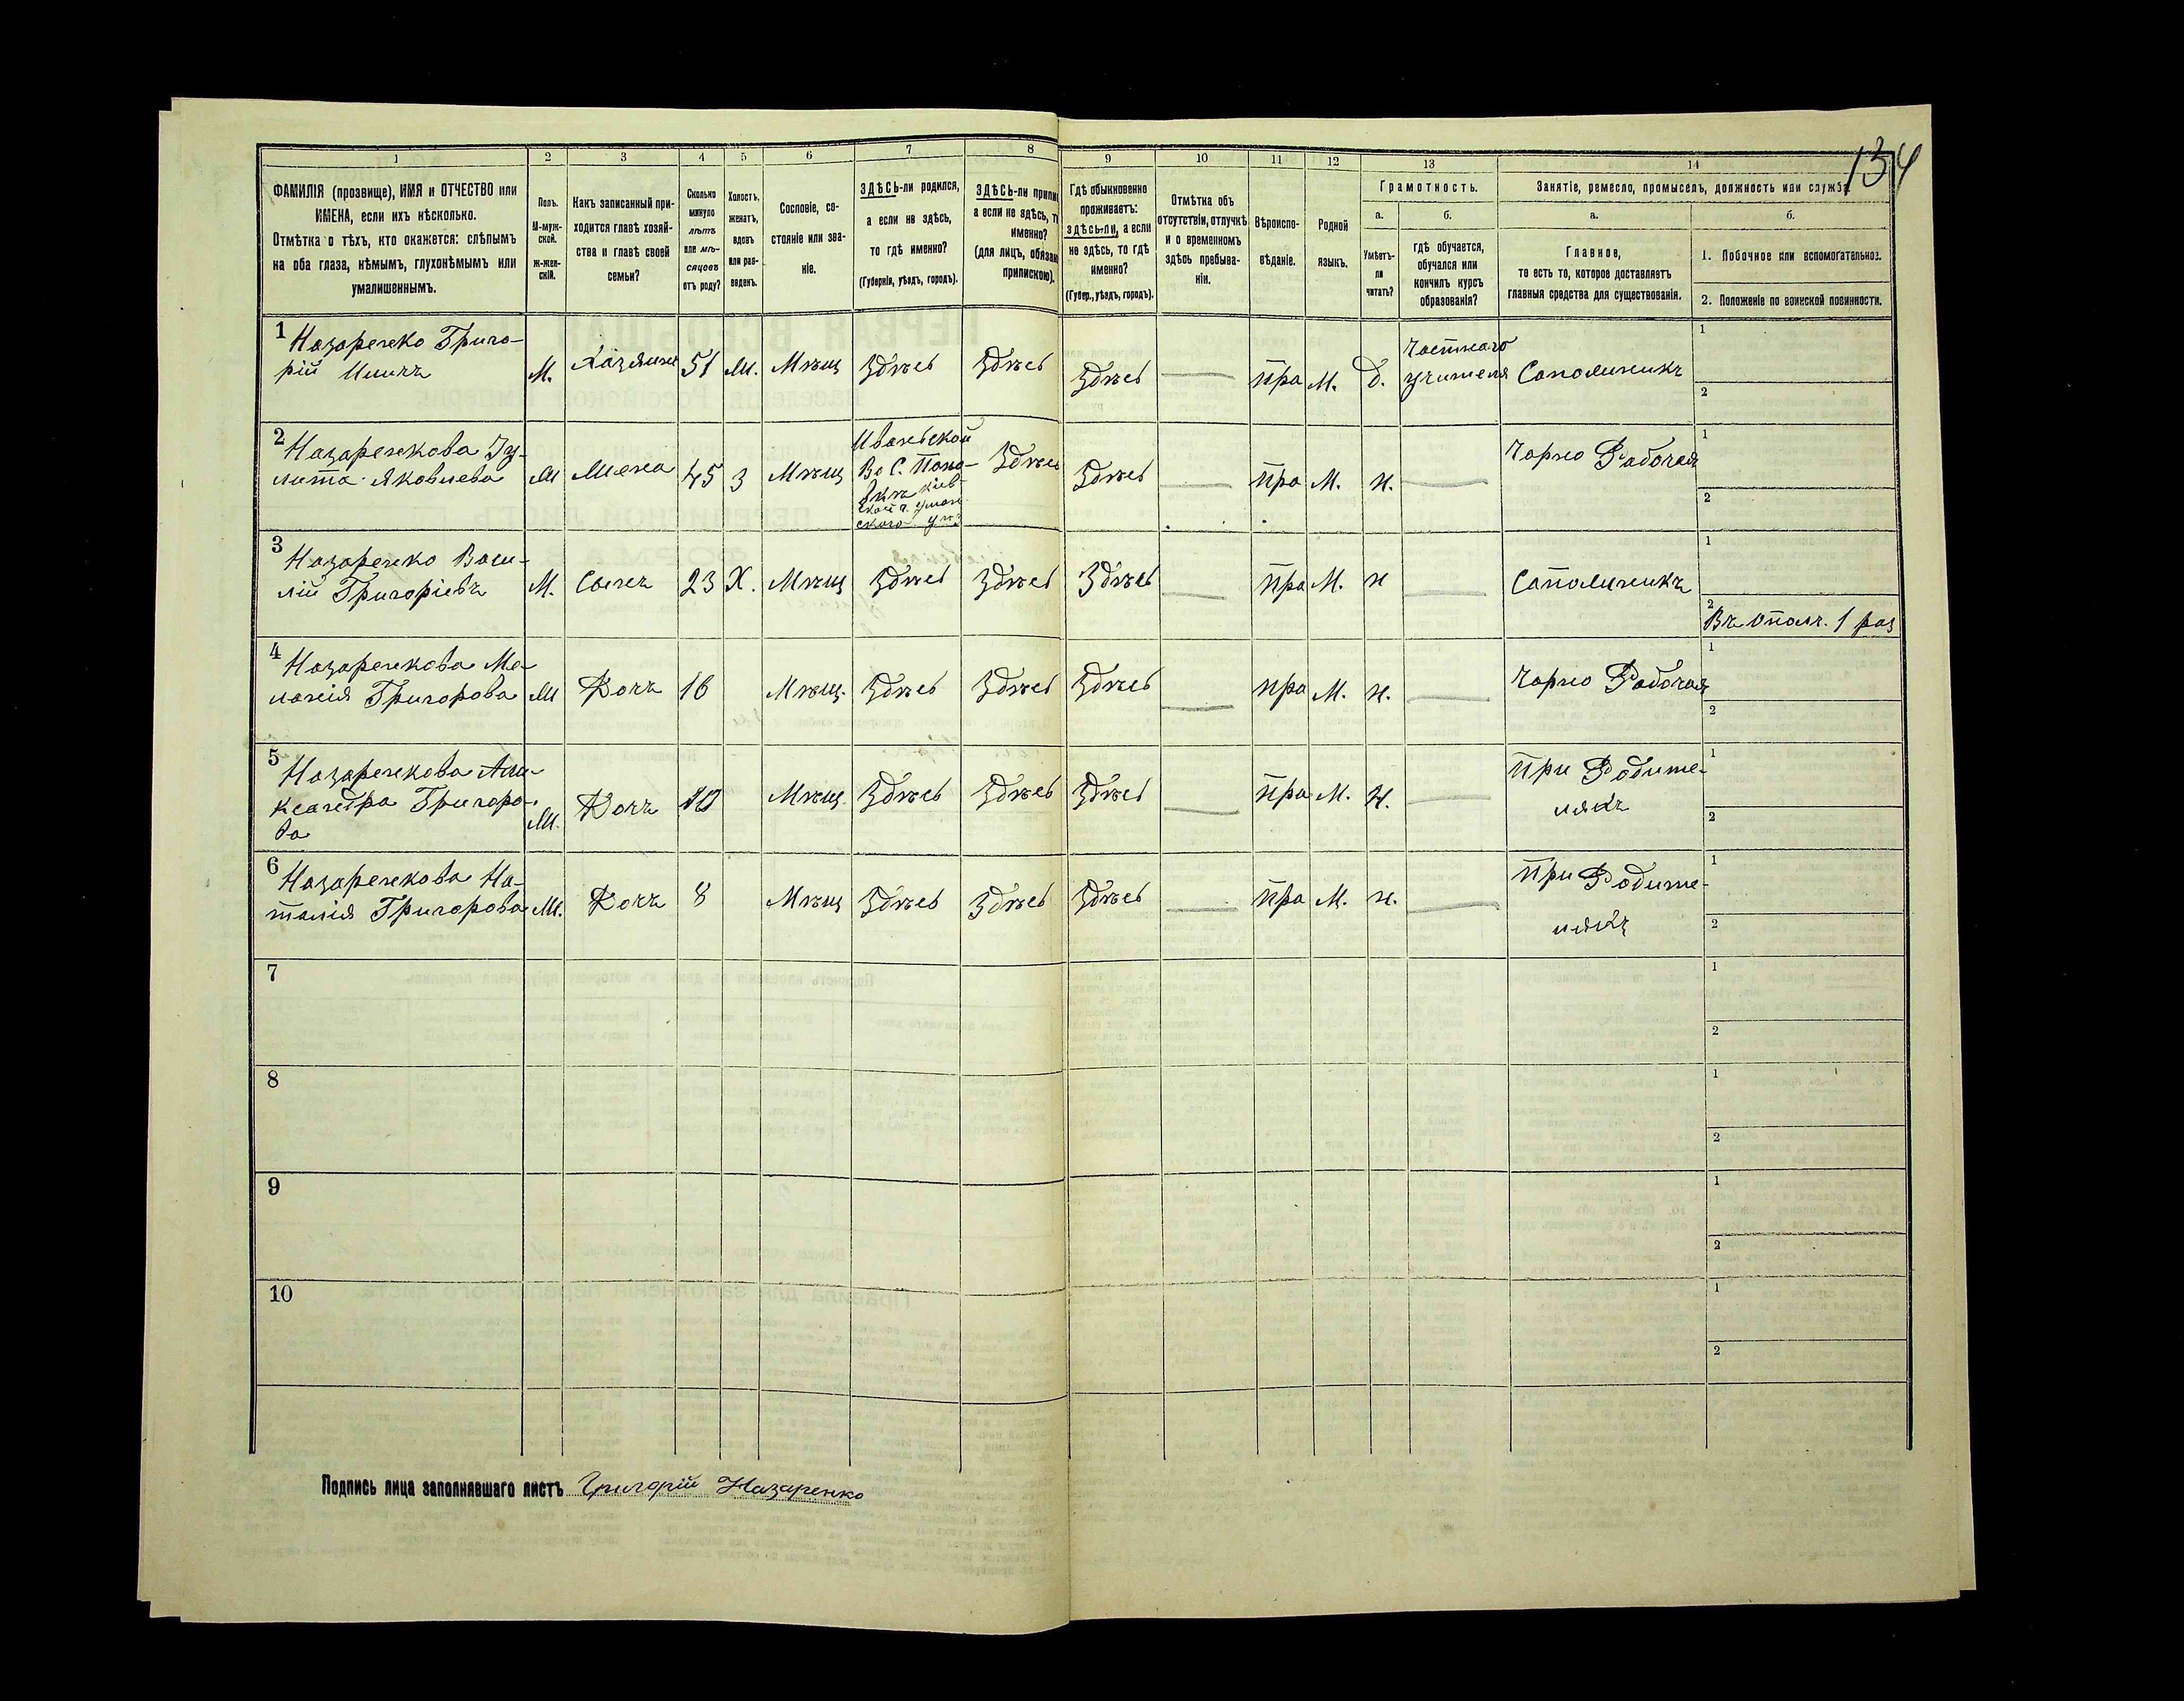 134
1 2 3 4 5 6 7 8 9 10 11 12 13 14
ФАМИЛІЯ (прозвище), ИМЯ и ОТЧЕСТВО или
ИМЕНА, если ихъ нѣсколько.
Отмѣтка о тѣхъ, кто окажется: слѣпымъ
на оба глаза, нѣмымъ, глухонѣмымъ или
умалишеннымъ.
Полъ.
М-муж-
ской.
Ж-жен-
скій.
Какъ записанный при-
ходится главѣ хозяй-
ства и главѣ своей
семьи?
Сколько
минуло
лѣтъ
или мѣ-
сяцевъ
отъ роду?
Холостъ,
женатъ,
вдовъ
или раз-
веденъ.
Сословіе, со-
стояніе или зва-
ніе.
ЗДѢСЬ-ли родился,
а если не здѣсь,
то гдѣ именно?
(Губернія, уѣздъ, городъ).
ЗДѢСЬ-ли припи
а если не здѣсь, т
именно?
(для лицъ, обязан
припискою).
Гдѣ обыкновенно
проживаетъ:
здѣсь-ли, а если
не здѣсь, то гдѣ
именно?
(Губер., уѣздъ, городъ).
Отмѣтка объ
отсутствіи, отлучкѣ
и о временномъ
здѣсь пребыва-
ніи.
Вѣроиспо-
вѣданіе.
Родной
языкъ.
Грамотность.
а.
Умѣетъ-
ли
читать?
б.
гдѣ обучается,
обучался или
кончилъ курсъ
образованія?
Занятіе, ремесло, промыселъ, должность или служба.
а.
Главное,
то есть то, которое доставляетъ
главныя средства для существованія.
б.
1. Побочное или вспомогательное.
2. Положеніе по воинской повинности.
1 Назаренко Григо-
рій Иличъ
М. Хазяинъ 51 Ж. Мѣщ Здѣсь Здѣсь Здѣсь — пра М. д.
Частнаго
учителя
Саполыникъ
1
2
2 Назаренкова Іу-
лита Яковлева
Ж Жена 45 З Мѣщ
Иваньской
Во С.
кіев
ской г. уман
ского у
Здѣсь Здѣсь пра М. н. —
Чорно Рабочая
1
2
3 Назаренко Васи-
лій Григоріевъ
М. Сынъ 23 Х. Мѣщ Здѣсь Здѣсь Здѣсь — пра М. н —
Сапольникъ
1
2 Въ ополч. 1 раз
4 Назаренкова Ме
ланія Григорова
Ж Дочь 16 Мѣщ. Здѣсь Здѣсь Здѣсь — пра М. н. —
Чорно Рабочая
1
2
5 Назаренкова Але-
ксандра Григоро-
ва
Ж. Дочь 10 Мѣщ. Здѣсь Здѣсь Здѣсь — пра М. н. —
При Родите-
ляхъ
1
2
6 Назаренкова На-
талія Григорова
Ж. Дочь 8 Мѣщ Здѣсь Здѣсь Здѣсь — пра М. н. —
При Родите-
ляхъ
1
2
7
1
2
8
1
2
9
1
2
10
1
2
Подпись лица заполнявшаго листъ Григорій Назаренко